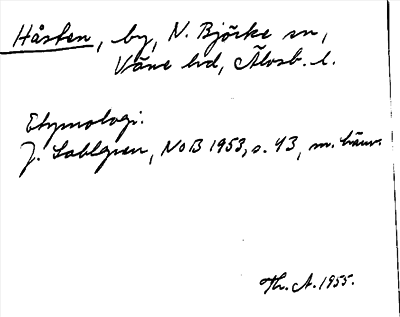 Håsten, by, N. Björke sn,
Väne hd, Älvsb. l.
Etymologi:
J. Sahlgren, NoB 1953, s. 43, m. hänv.
Th. A. 1955.